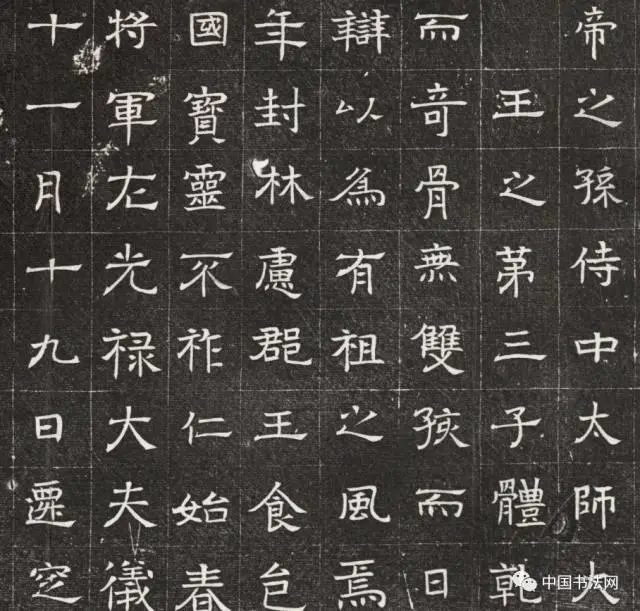 帝之孫侍中太師大
王之苐三子體乾
而奇骨無雙孩而日
辯以為有祖之風焉
年封林慮郡王食邑
國寶靈不祚仁始春
将軍左光禄大夫儀
十一月十九日遷窆
中国书法网